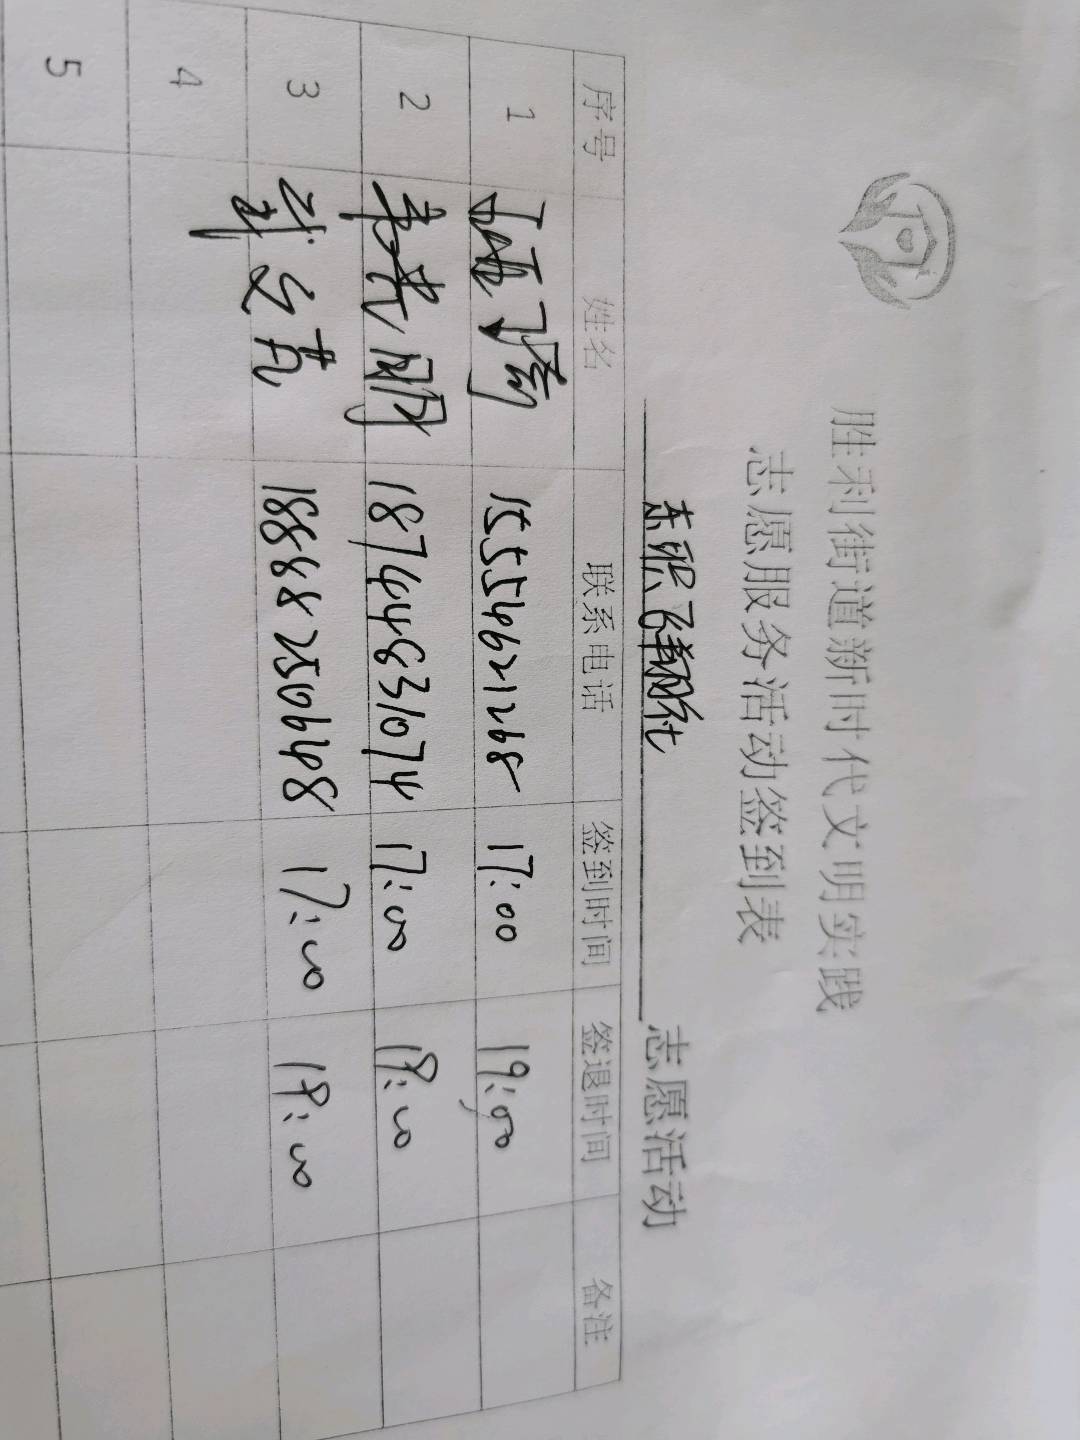 胜利街道新时代文明实践
志愿服务活动签到表
志愿活动
序号 姓名 联系电话 签到时间 签退时间 备注
1 15554621268 17:00 19:00
2 18744831074 17:00 19:00
3 18888250648 17:00 19:00
4
5